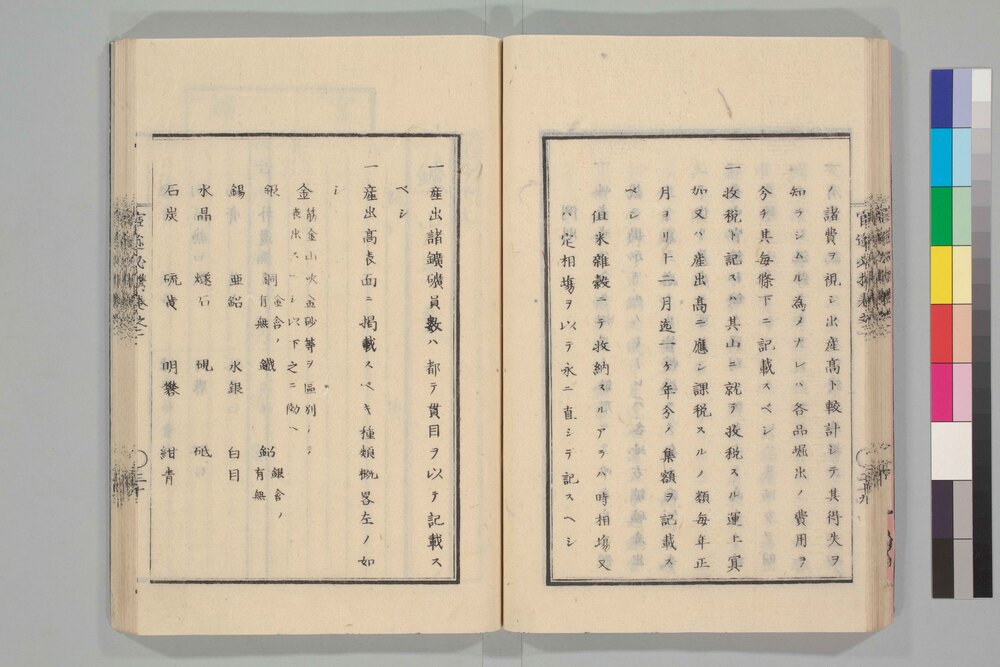 諸費ヲ視シ出産高ト較計シテ其得失ヲ
知ラシムル為メナレハ各品堀出ノ費用ヲ
今チ其毎條下ニ記載スベシ
一收税ト記スハ其山ニ就テ收税スル運上冥
加又ハ産出高ニ應シ課税スルノ類毎年正
月ヨリ十二月迄一ケ年分ノ集額ヲ記載ス
ベシ
但米雑穀ニテ收納スルアラバ時相場又
ハ定相場ヲ以テ永ニ直シテ記スヘシ
一産出諸鑛礦員數ハ都テ貫目ヲ以テ記載ス
ベシ
一産出高表面ニ掲載スベキ種類概畧左ノ如
シ
金 筋金山吹金砂等ヲ區別シテ
表出スベシ以下之ニ効ヘ
銀 銅 金含ノ有無 鐵 鉛 銀含ノ有無
錫 亜鉛 水銀 白目
水晶 燧石 硯 砥
石炭 硫黄 明礬 紺青